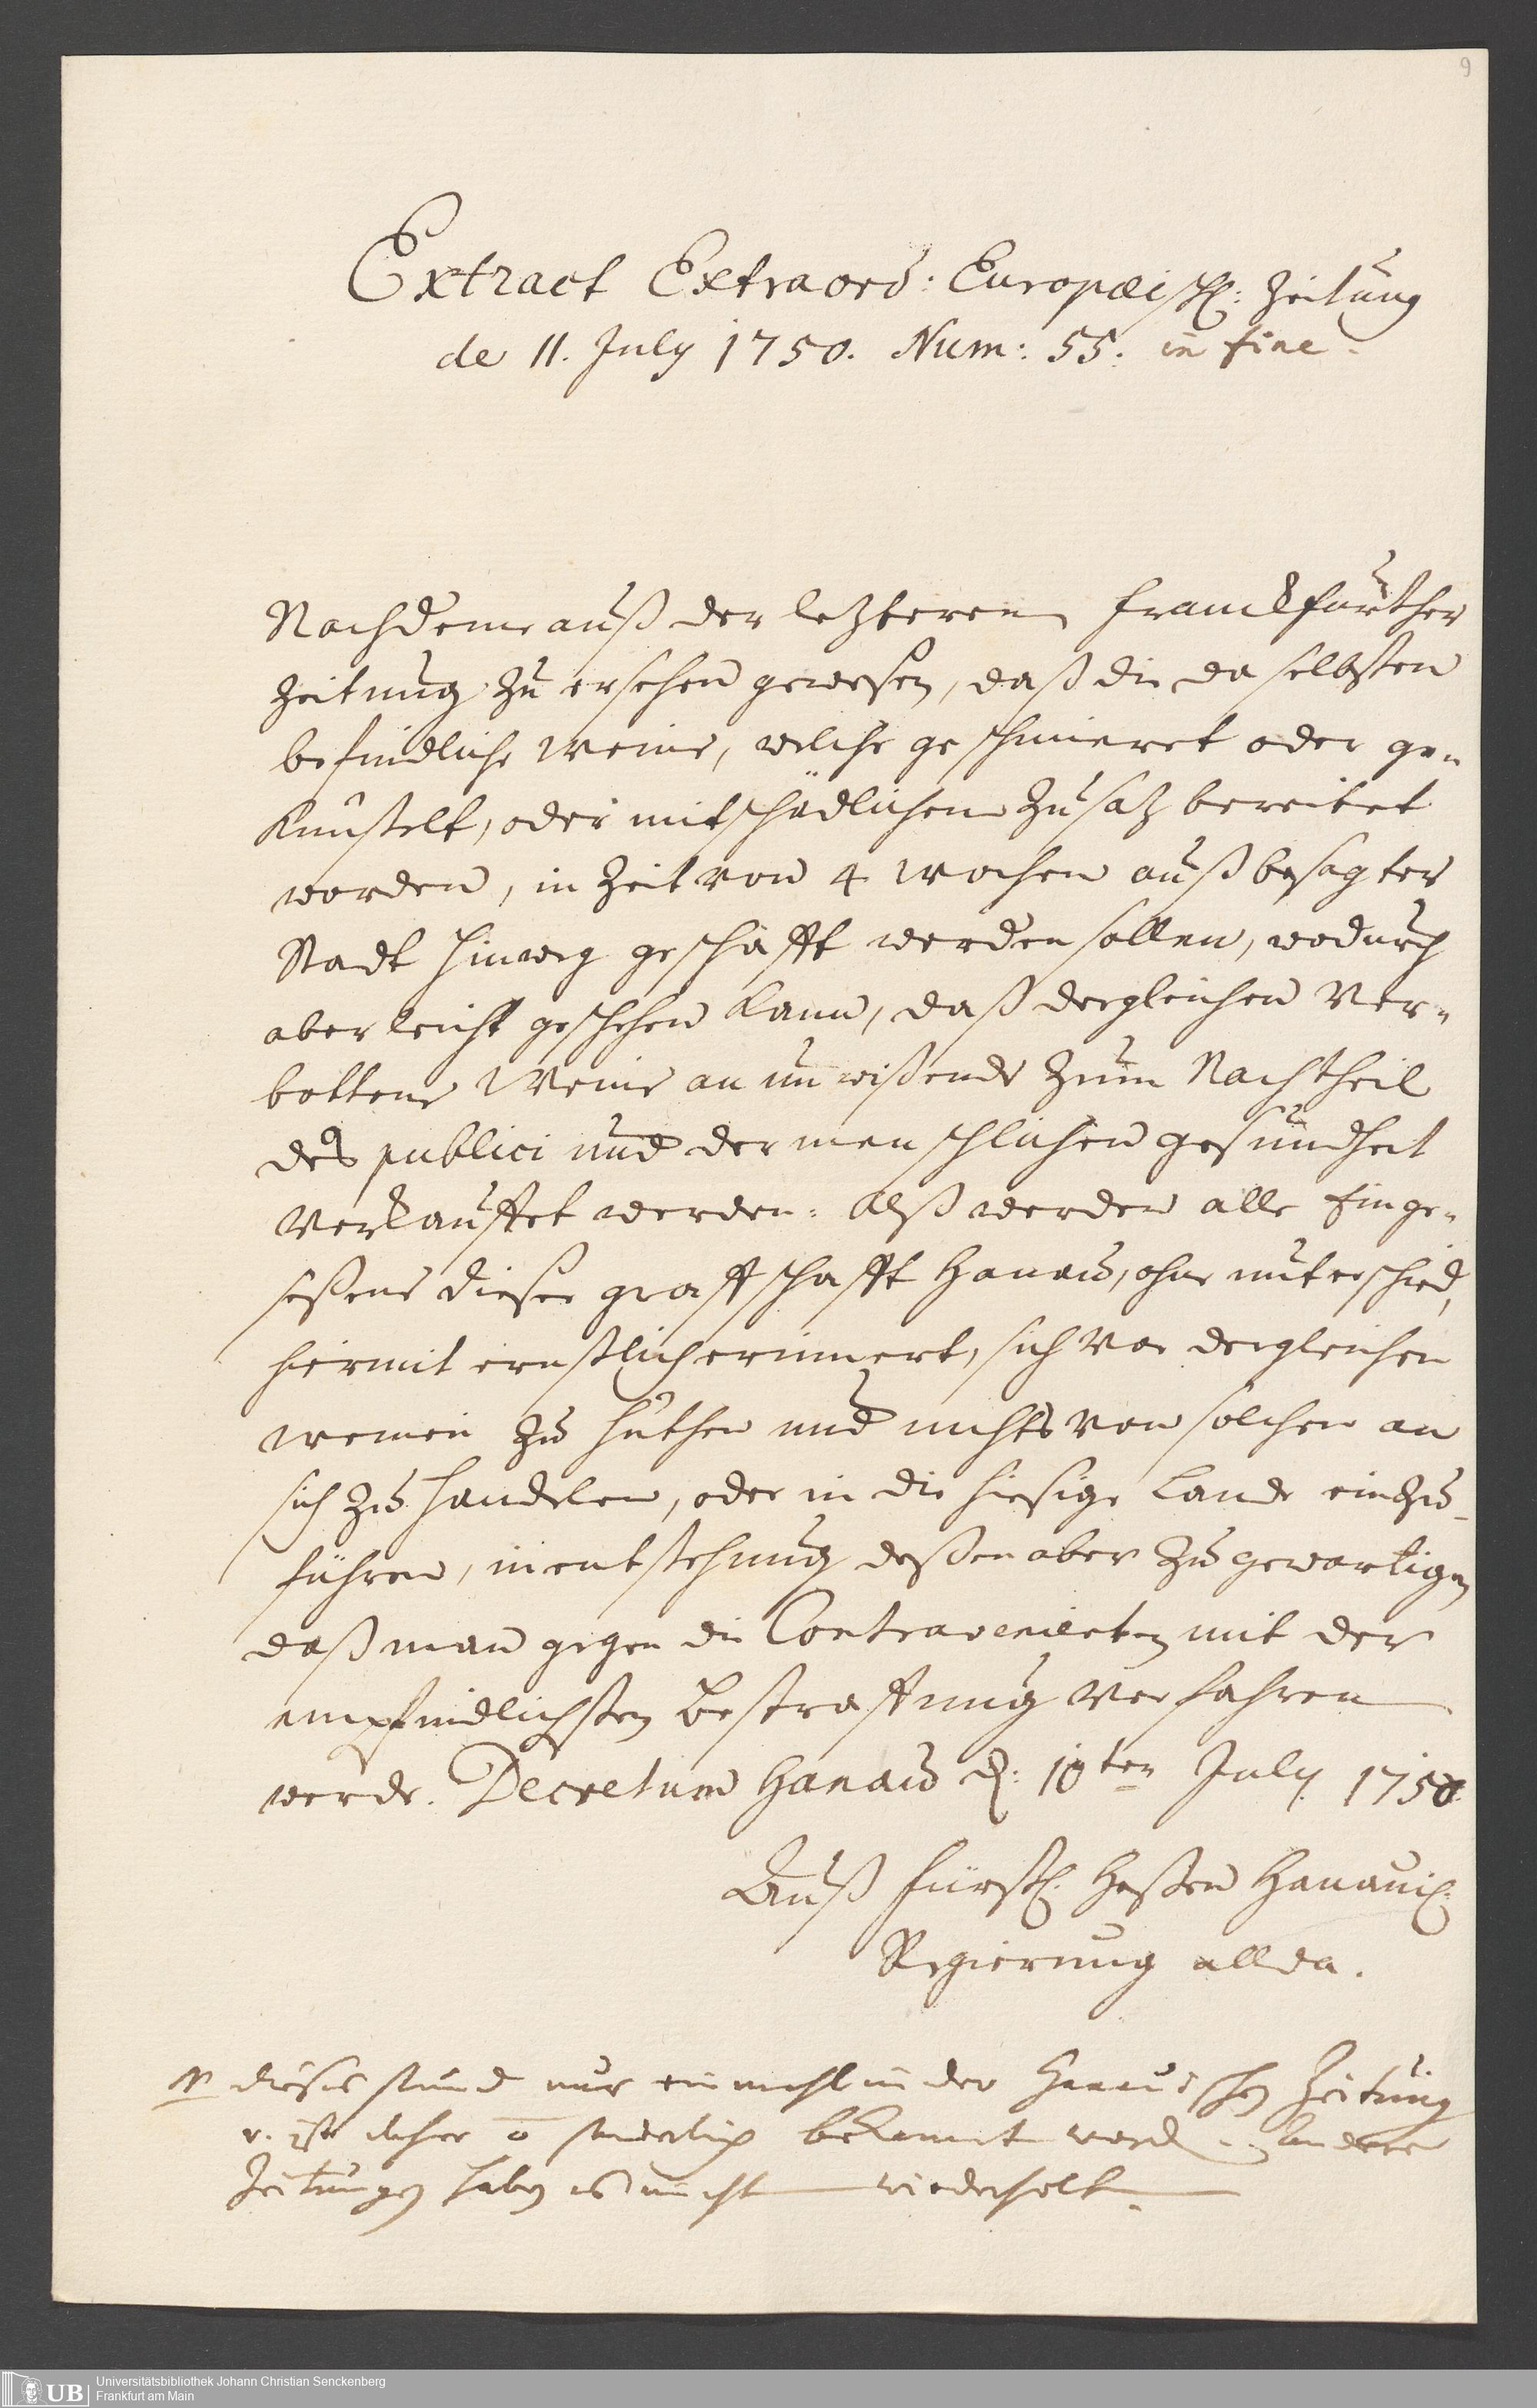 9
Extract Extraord: Europæisch: Zeitung
de 11. July 1750. Num: 55. in fine.
Nachdeme auß der letzteren Franckfurther
Zeitung zu ersehen gewesen, daß die daselbsten
befindliche Weine, welche geschmieret oder ge-
künstelt, oder mit schädlichem Zusatz bereitet
worden, in Zeit von 4 Wochen auß besagter
Stadt hinweg geschafft werden sollen, wodurch
aber leicht geschehen kann, daß dergleichen Ver-
bottene Weine an unwißende zum Nachtheil
des publici und der menschlichen gesundheit
Verkauffet werden: Alß werden alle Einge-
seßene dieser Graffschafft Hanau, ohne unterschied,
hiermit ernstlich erinnert, sich vor dergleichen
weinen zu hüthen und nichts von solchen an
sich zu handelen, oder in die hiesige Lande einzu-
führen, in entstehung deßen aber zu gewartigen
daß man gegen die Contravenienten mit der
empfindlichsten Bestraffung verfahren
werde. Decretum Hanau d: 10ten July 1750.
Auß Fürstl. Heßen Hanauis:
Regierung allda.
dieses stund nur einmahl in der Hanauischen Zeitung
v. ist daher o sonderlich bekannt word. andere
Zeitungen haben es nicht wiederholt.
UB
Universitätsbibliothek Johann Christian Senckenberg
Frankfurt am Main